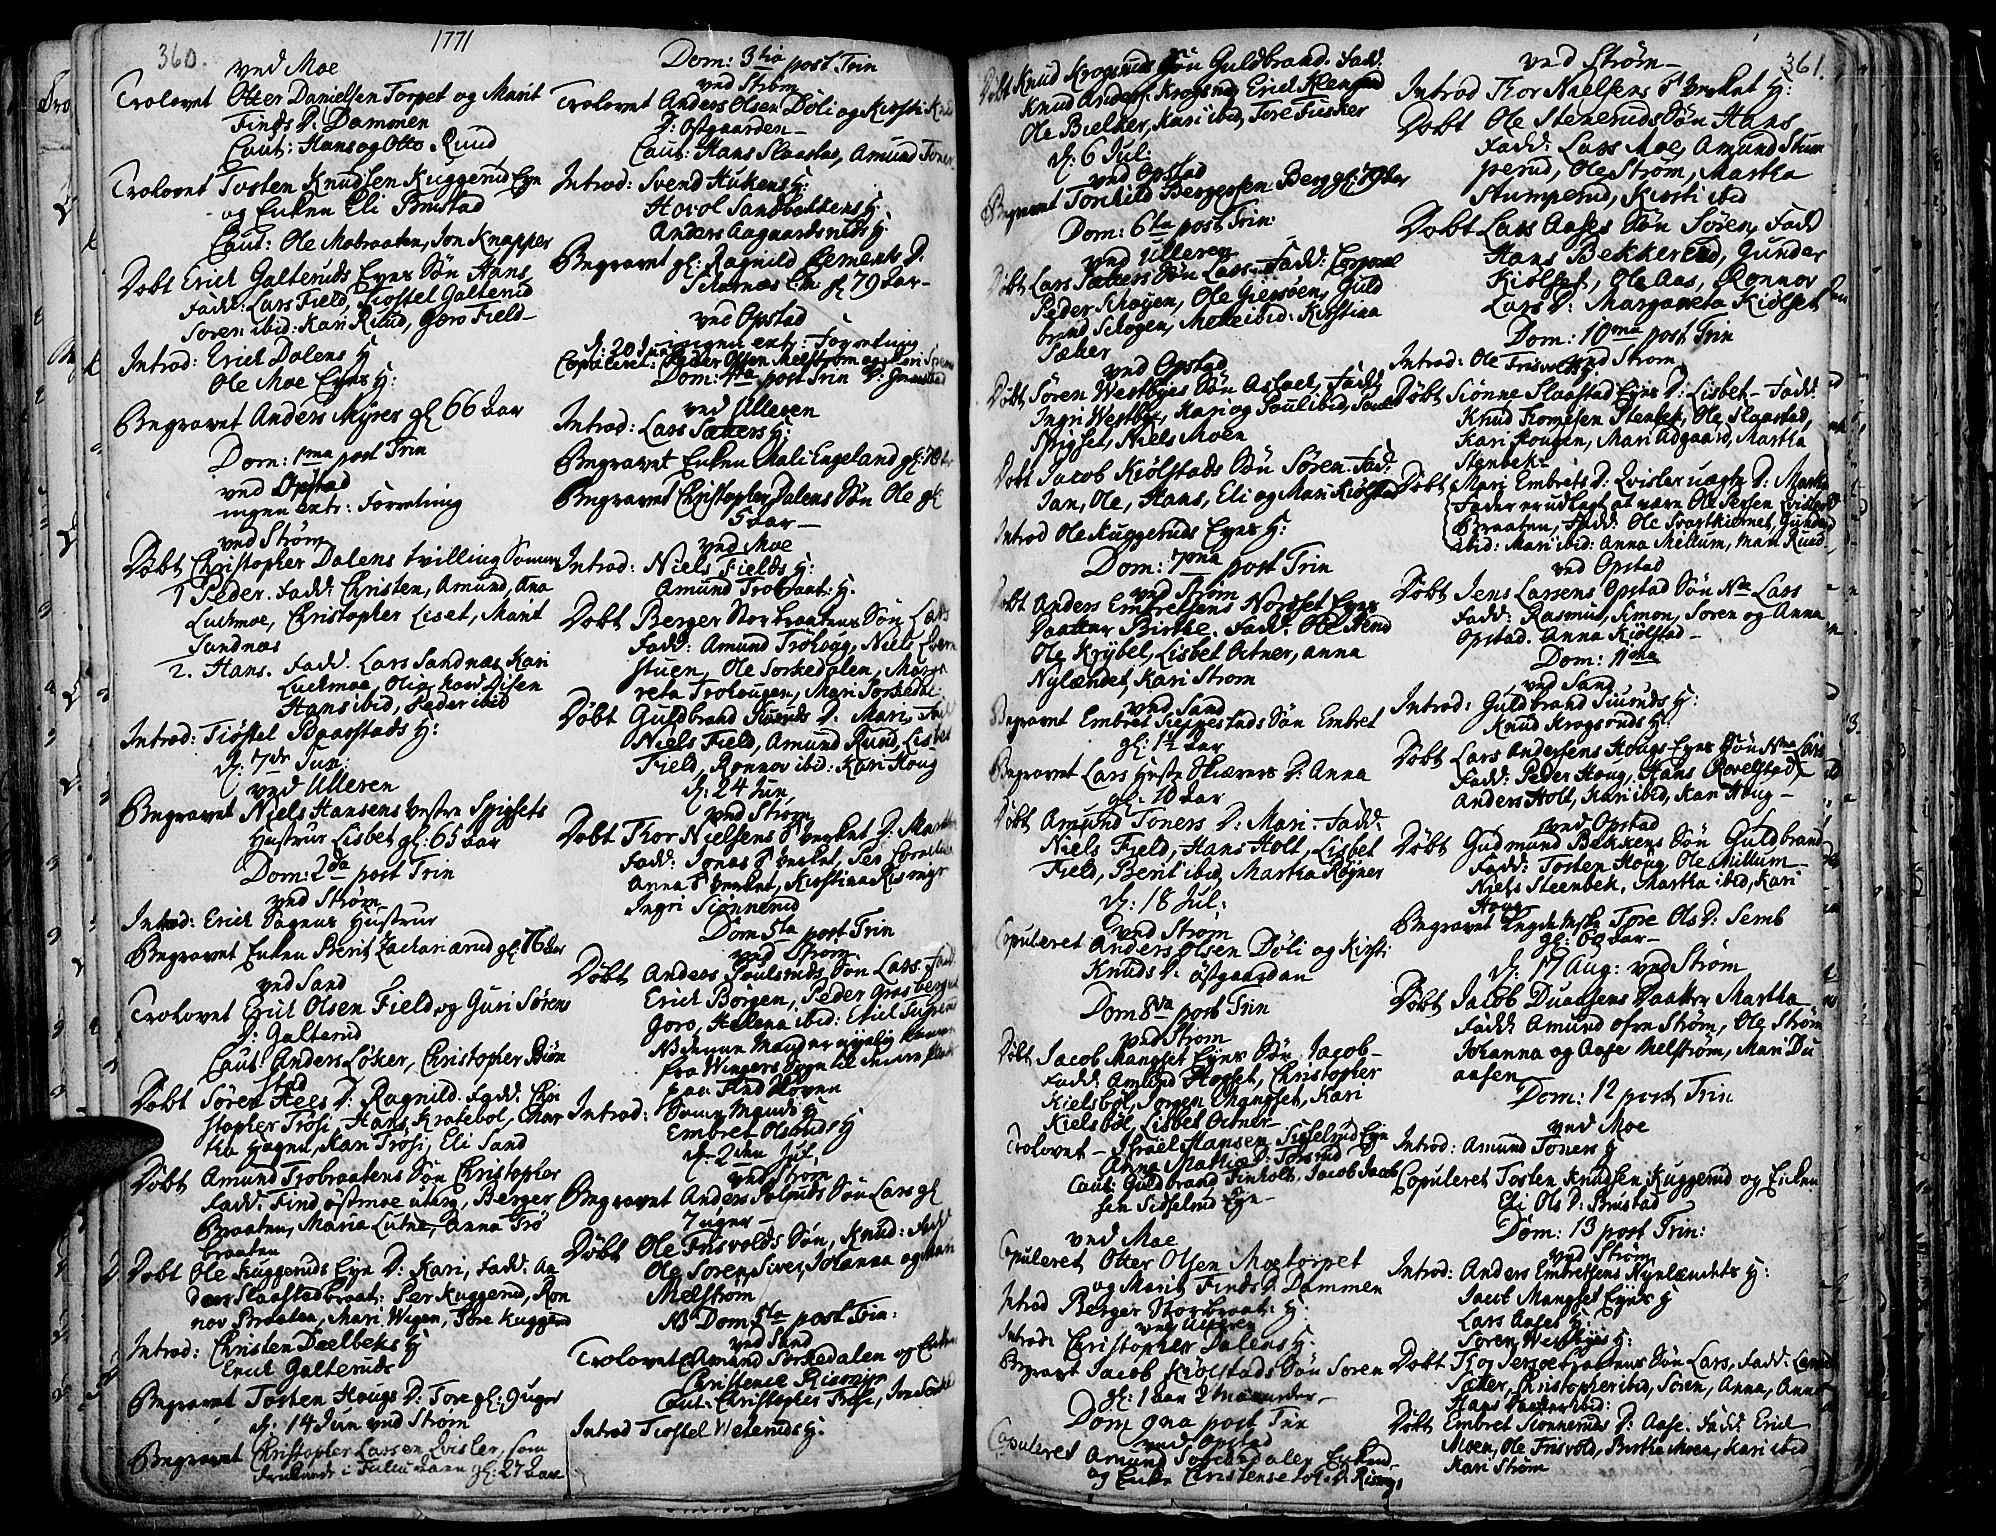 360.
1771
ved Moe
Trolovet Otter Danielsen Torpet og Marit
Finds D: Dammen
Caut: Hans og Otto Ruud
Trolovet Tosten Knudsen Kuggerud Eyn
og Enken Eli Brustad
Caut: Ole Mobraaten, Jon Knapper
Døbt Erich Galteruds Eyes Søn Hans
Fadd: Lars Field, Tiostel Galterud
Soren ibid: Kari Ruud, Goro Field
Introd: Erich Dalens H
Ole Moe Eyes H:
Begravet Anders Myrer gl 66 Aar
Dom: 1ma post Trin
ved Opstad
ingen extr: Forretning
ved Strøm
Døbt Christopher Dalens tvilling Sønner
1 Peder. Fadd: Christen, Amund, Ana
Luchmoe, Christopher Liset, Marit
Sandnæs
2. Hans. Fadd. Lars Sandnæs, Kari
Luchmoe, Olia Disen
Hans ibid, Peder ibid
Introd: Tiøstel Baastads H:
d. 7de Jun:
ved Ulleren
Begravet Niels Hansens Vestre Spigsets
Hustrue Lisbet gl: 65 aar
Dom: 2da post Trin
ved Strøm
Introd: Erich Sagens Hustrue
Begravet Enken Berit Zachariærud gl: 76 aar
ved Sand
Trolovet Erich Olsen Field og Guri Sørens
D: Galterud
Caut: Anders Løken, Christopher Biøn
stad
Døbt Søren Hees D: Ragnild. Fadd: Chri
stopher Trøsi, Hans Kratebøl, Mar
tha Hagen, Kari Trøsi, Eli Sand
Døbt Amund Trobraatens Søn Christopher
Fadd: Find østmoe uten, Berger
Braaten, Maria Lutne, Anna Trø
braaten
Døbt Ole Kuggeruds Eyn D: Kari, Fadd: An
ders Slaastadbraat: Per Kuggerud, Ron
nov Braaten, Mari Wigen, Tore Kuggerud
Introd: Christen Dælbeks H
Erich Galteruds
Begravet Tosten Hougs D: Tore gl: 9 uger
d. 14 Jun ved Strøm
Begravet Christopher Larsen Qvisler, som
gl: 27 Aar
Dom: 3tia post Trin
ved Strøm
Trolovet Anders Olsen Døli og Kirsti Knuds
D: Ostgaarden
Caut: Hans Slaastad, Amund Toner
Introd: Svend Hukens H:
Hovol Sandbakkens H:
Anders Aagaardsneds H:
Begravet gl: Ragnild Clements D.
Scharnæs gl 79 Aar
ved Opstad
ingen extr: Forretning
d: 20 Jun
Copuleret: Peder Otten Melstrøm og
Dom: 4ta post Trin
ved Ulleren
Introd: Lars Sæters H:
Begravet Enken Mali Engeland gl: 78
Begravet Christopher Dalens Søn Ole gl
5 aar
ved Moe
Introd: Niels Fields H:
Amund Trobraat: H.
Døbt Berger Storbraatens Søn Lars
Fadd: Amund Trohoug, Niels
stuen, Ole Sorkedalen, Marga
reta Trohougen, Mari Sorkedal
Døbt Guldbrand D: Mari, Fadd
Niels Field, Amund Ruud, Lisbet
Field, Ronnov ibid: Kari Houg
d. 24 Jun
ved Strøm
Døbt Thor Nielsens D:
Fadd: Jonas
Anna
Ingri Siønnerud
Dom 5ta post Trin
ved Strøm
Døbt Anders Poulsruds Søn Lars. Fadd
Erich Børgen, Peder Grasberget
Goro, Helena ibid:
NB denne Mand er nyelig kommen
fra Wingers Sogn til
paa Find Skoven
Introd: Samme Mands H
Embret Olsruds H
d. 2den Jul.
ved Strøm
Begravet Anders Søn Lars gl
7 uger
Døbt Ole Frisvolds Søn, Knud: Fadd
Ole Soren, Siver, Johanna og Kari
Melstrøm
NB Dom 5ta post Trin:
ved Sand
Trolovet Amund Sorkedalen og Enken
Christence
Caut: Christopher
Introd Tiostel Weteruds H.
361.
Døbt Knud Krogsruds Søn Guldbrand. Fadd.
Knud Anders: Krogsrud, Erich
Ole Bielker, Kari ibid, Tore Fiusker
d: 6 Jul:
ved Opstad
Begravet Torchild Bergersen Berg gl: 79 Aar
Dom: 6ta post Trin:
ved Ulleren
Døbt Lars Sæters Søn Lars. Fadd: Corporal
Peder Schøyen, Ole Giersøen, Guld
brand Schøgen, ibid: Kirstina
Sæter
ved Opstad
Døbt Søren Westbyes Søn Fadd:
Ingri Westbye, Kari og Poul ibid,
Spigset, Niels Moen
Døbt Jacob Kiølstads Søn Søren. Fad:
Jan, Ole, Hans, Eli og Mari Kiølstad
Introd Ole Kuggeruds Eyes H:
Dom: 7ma post Trin
ved Strøm
Døbt Anders Embretsens Nordset Eyes
Daatter Birthe. Fadd:
Ole Krybel, Lisbet Ottner, Anna
Nylændet, Kari Strøm
ved Sand
Begravet Embret Seppestads Søn Embret
gl: 1½ Aar
Begravet Lars Skiærers D: Anna
gl: 10 Aar
Døbt Amund Toners D: Mari. Fadd:
Niels Field, Hans Holt, Lisbet
Field, Berit ibid, Martha Røyner
d: 18 Jul:
ved Strøm
Copuleret Anders Olsen Døli og Kirsti
Knuds D: østgaarden
Dom 8va post Trin
ved Strøm
Døbt Jacob Mangset Eyes Søn Jacob
Fadd: Amund Christopher
Kielsbøl, Jorgen Mangset, Kari
Kielsbøl, Lisbet Ottner
Trolovet Israel Hansen Sidselrud Eyn
Anna Mathis D:
Caut: Guldbrand Finholt, Jacob Jacob
sen Sidselrud Eyn
ved Moe
Copuleret Otter Olsen Moetorpet
og Marit Finds D: Dammen
Introd Berger Storbraat: H:
ved Ulleren
Introd: Christopher Dalens H:
Begravet Jacob Kiølstads Søn Soren
gl: 1 aar 2 maaneder
Dom 9na post Trin
ved Opstad
Copuleret Amund Sorkedalen
og Enken Christense
ved Strøm
Introd Thor Nielsens H:
Døbt Ole Steneruds Søn Hans
Fadd: Lars Moe, Amund Stum
perud, Ole Strøm, Martha
Stumperud, Kirsti ibid
Døbt Lars Aases Søn Søren, Fadd
Hans Bekkerud, Gunder
Kiølset, Ole Aas, Ronnov
Lars D: Margareta Kiølset
Dom: 10ma post Trin
ved Strøm
Introd: Ole
Døbt Siønne Slaastad Eyes D: Lisbet. Fadd:
Knud Stenbek, Ole Slaastad,
Kari Hougen, Mari Adgaard, Martha
Stenbek
Døbt Mari Embrets D: Qvisler uægte D: Martha
Fader er udlagt at være Ole
Braaten, Fadd: Ole Svartkiernet, Gunder
ibid: Mari ibid: Anna Mellum, Mari Ruud
ved Opstad
Døbt Jens Larsens Opstad Søn Lars
Fadd: Rasmus, Simon, Soren og Anna
Opstad. Anna Kiølstad
Dom: 11ma
ved Sand
Introd: Guldbrand H:
Knud Krogsruds H:
Døbt Lars Andersens Hougs Eyes Søn Lars
Fadd: Peder Houg, Hans
Anders Holt, Kari ibid, Kari Houg
ved Opstad
Døbt Gudmund Bekkens Søn Guldbrand
Fadd: Tosten Houg, Ole Millum
Niels Steenbek, Martha ibid, Kari
Houg
Begravet Tore Ols D: Semb
d: 17 Aug: ved Strøm
Døbt Jacob Duaasens Daatter Martha
Fadd: Amund Strøm, Ole Strøm
Johanna og Aase Melstrøm, Mari Du
aasen
Dom: 12 post Trin
ved Moe
Introd: Amund Toners H
Copuleret Tosten Knudsen Kuggerud og Enken
Eli Ols D: Brustad
Dom: 13 post Trin:
ved Strøm
Introd: Anders Embretsens Nynlændets H:
Jacob Mangset Eyes H
Lars Aases H:
Soren Westbyes H:
Døbt Thor Søn Lars, Fadd:
Sæter, Christopher ibid, Soren, Anna,
Hans
Døbt Embret Siønneruds D: Aase. Fadd: Erich
Moen, Ole Frisvold, Birthe Moen, Kari ibid
Kari Strøm